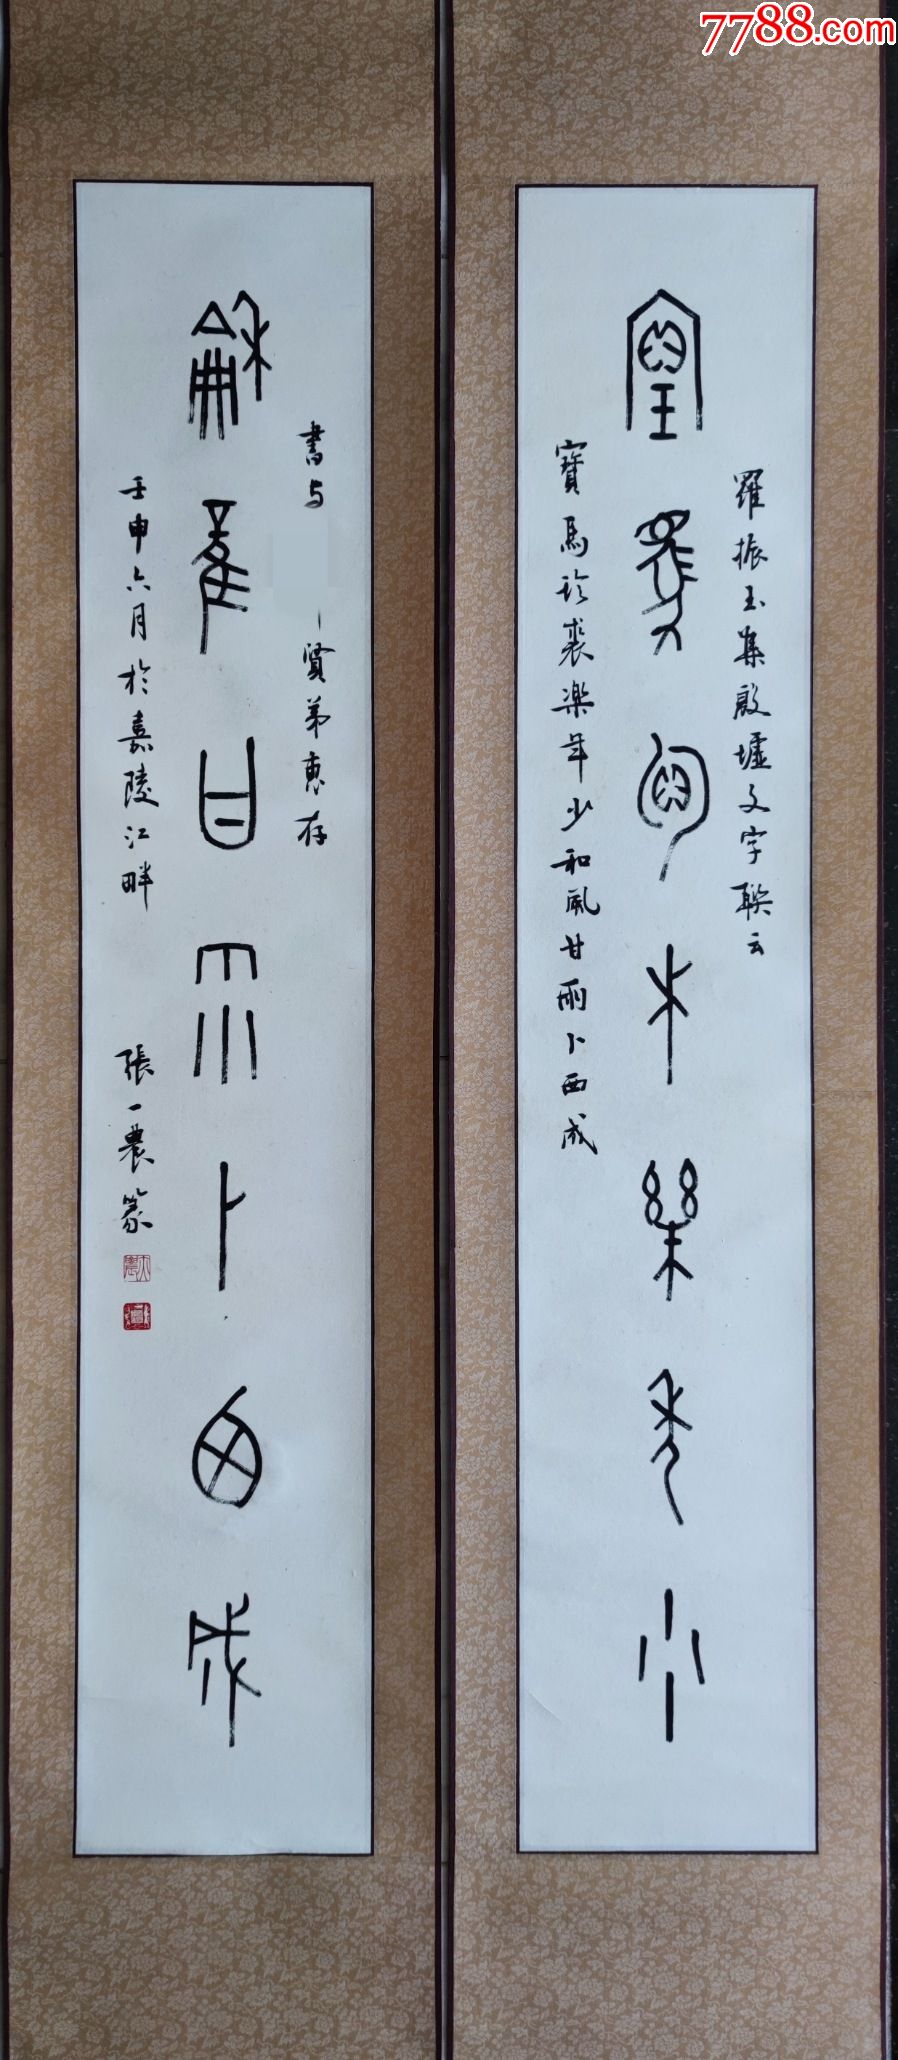 7788.com
羅振玉集殷墟文字聯云
寶馬珍裘樂年少
寶馬珍裘楽年少和風甘雨卜西成
書与 賢弟惠存
龢風甘雨卜西成
壬申六月於嘉陵江畔 張一農篆